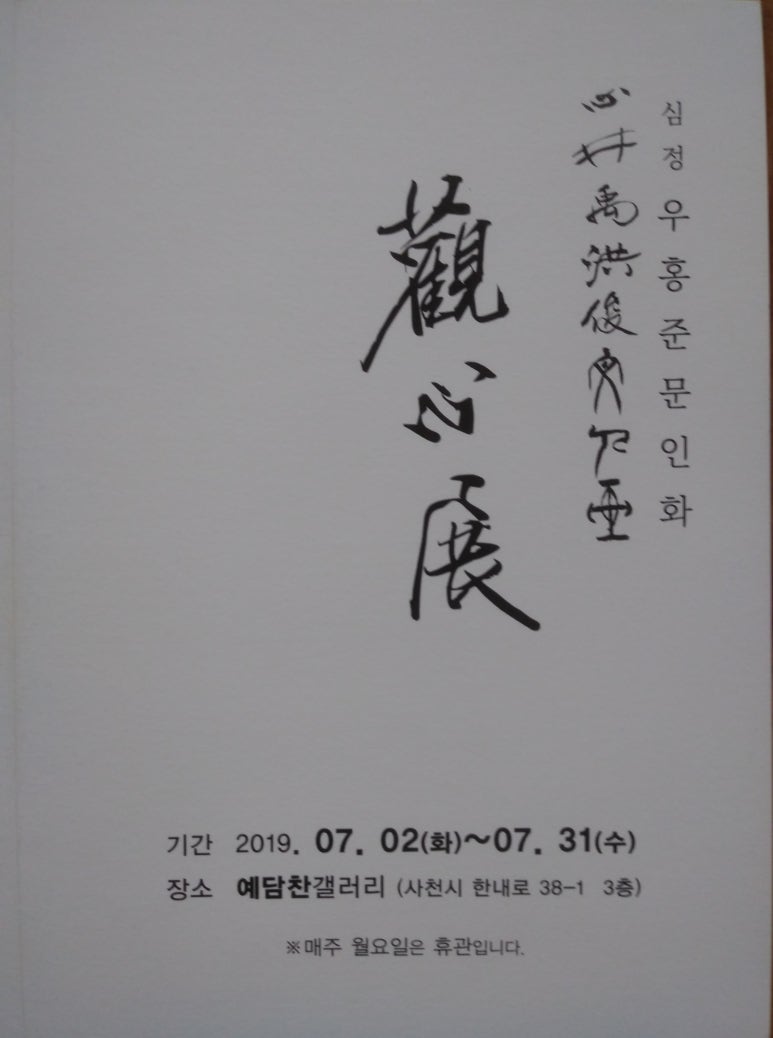 심정우홍준문인화
心井禹洪俊文人畫
觀心展
기간 2019. 07. 02(화)~07. 31(수)
장소 예담찬갤러리 (사천시 한내로 38-1 3층)
※매주 월요일은 휴관입니다.